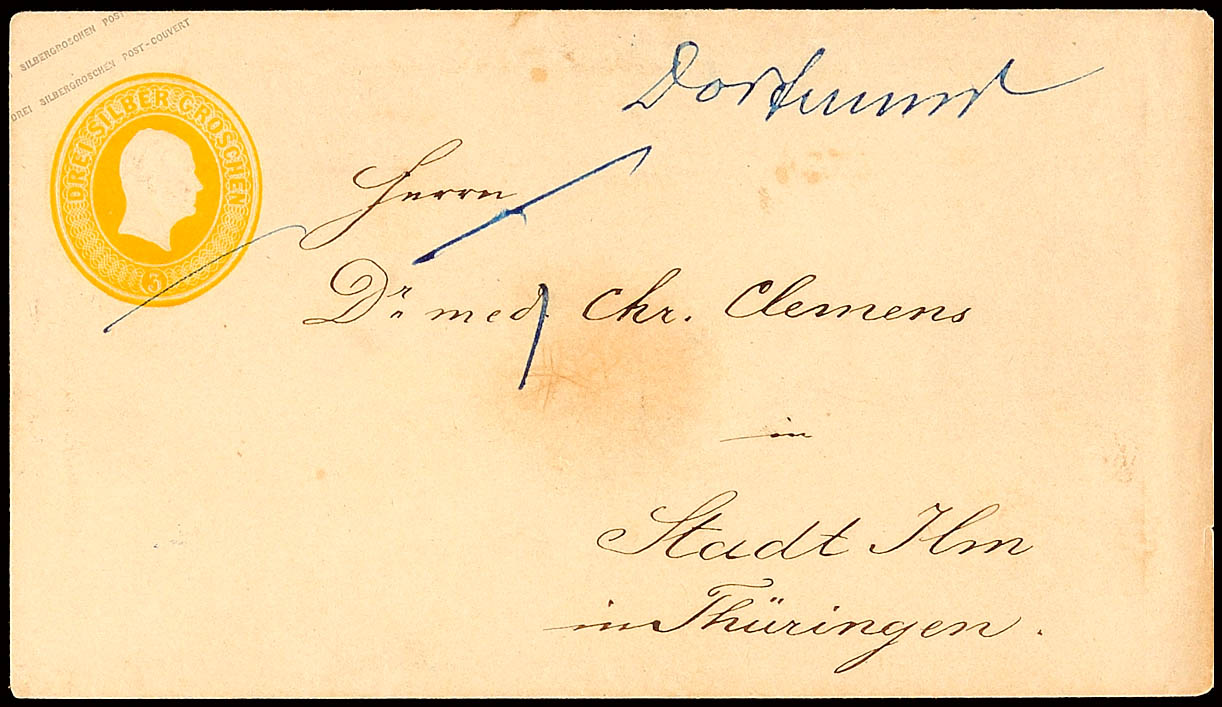 SILBERGROSCHEN POST
DREI SILBERGROSCHEN POST-COUVERT
DREI SILBER GROSCHEN
3
Dortmund
Herrn
Dr. med. Chr. Clemens
in
Stadt Ilm
in Thüringen.